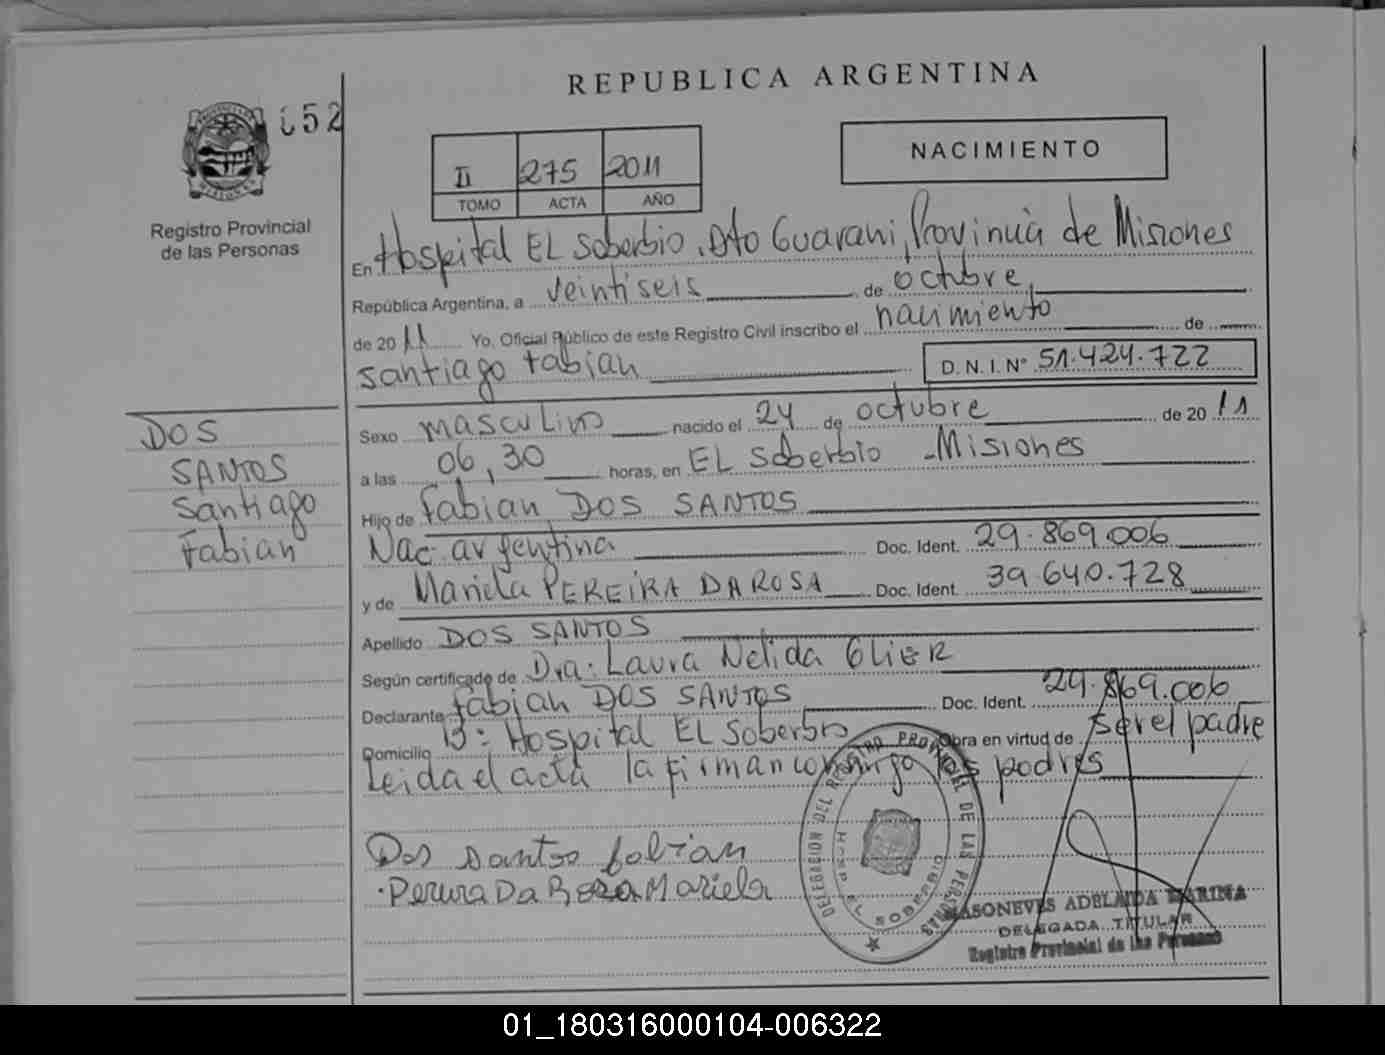 REPUBLICA ARGENTINA
052
II 275 2011
TOMO ACTA AÑO
NACIMIENTO
Registro Provincial
de las Personas
En Hospital EL Soberbio, Dto Guarani, Provincia de Misiones
República Argentina, a veintiseis de octubre,
de 2011 Yo, Oficial Público de este Registro Civil inscribo el nacimiento de
Santiago Fabian D.N.I.Nº 51.424.722
DOS
SANTOS
Santiago
Fabian
Sexo masculino nacido el 24 de octubre de 2011
a las 06,30 horas, en EL Soberbio - Misiones
Hijo de Fabian DOS SANTOS
Nac. argentina Doc. Ident. 29.869.006
y de Mariela PEREIRA DA ROSA Doc. Ident. 39.640.728
Apellido DOS SANTOS
Según certificado de Dra: Laura Nelida GLIER
Declarante Fabian DOS SANTOS Doc. Ident. 29.869.006
Domicilio B: Hospital EL Soberbio Obra en virtud de ser el padre
Leida el acta la firman conmigo los padres
Dos Santos fabian
Pereira Da Rosa Mariela
DELEGACION DEL REGISTRO PROVINCIAL DE LAS PERSONAS
HOSP. EL SOBERBIO
MASONEVES ADELAIDA MARINA
DELEGADA TITULAR
Registro Provincial de las Personas
01_180316000104-006322